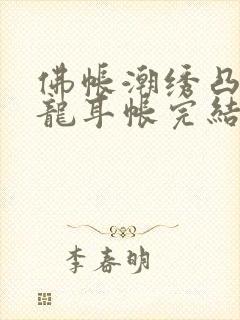 佛帐潮绣凸
龍耳帐完結
李春明